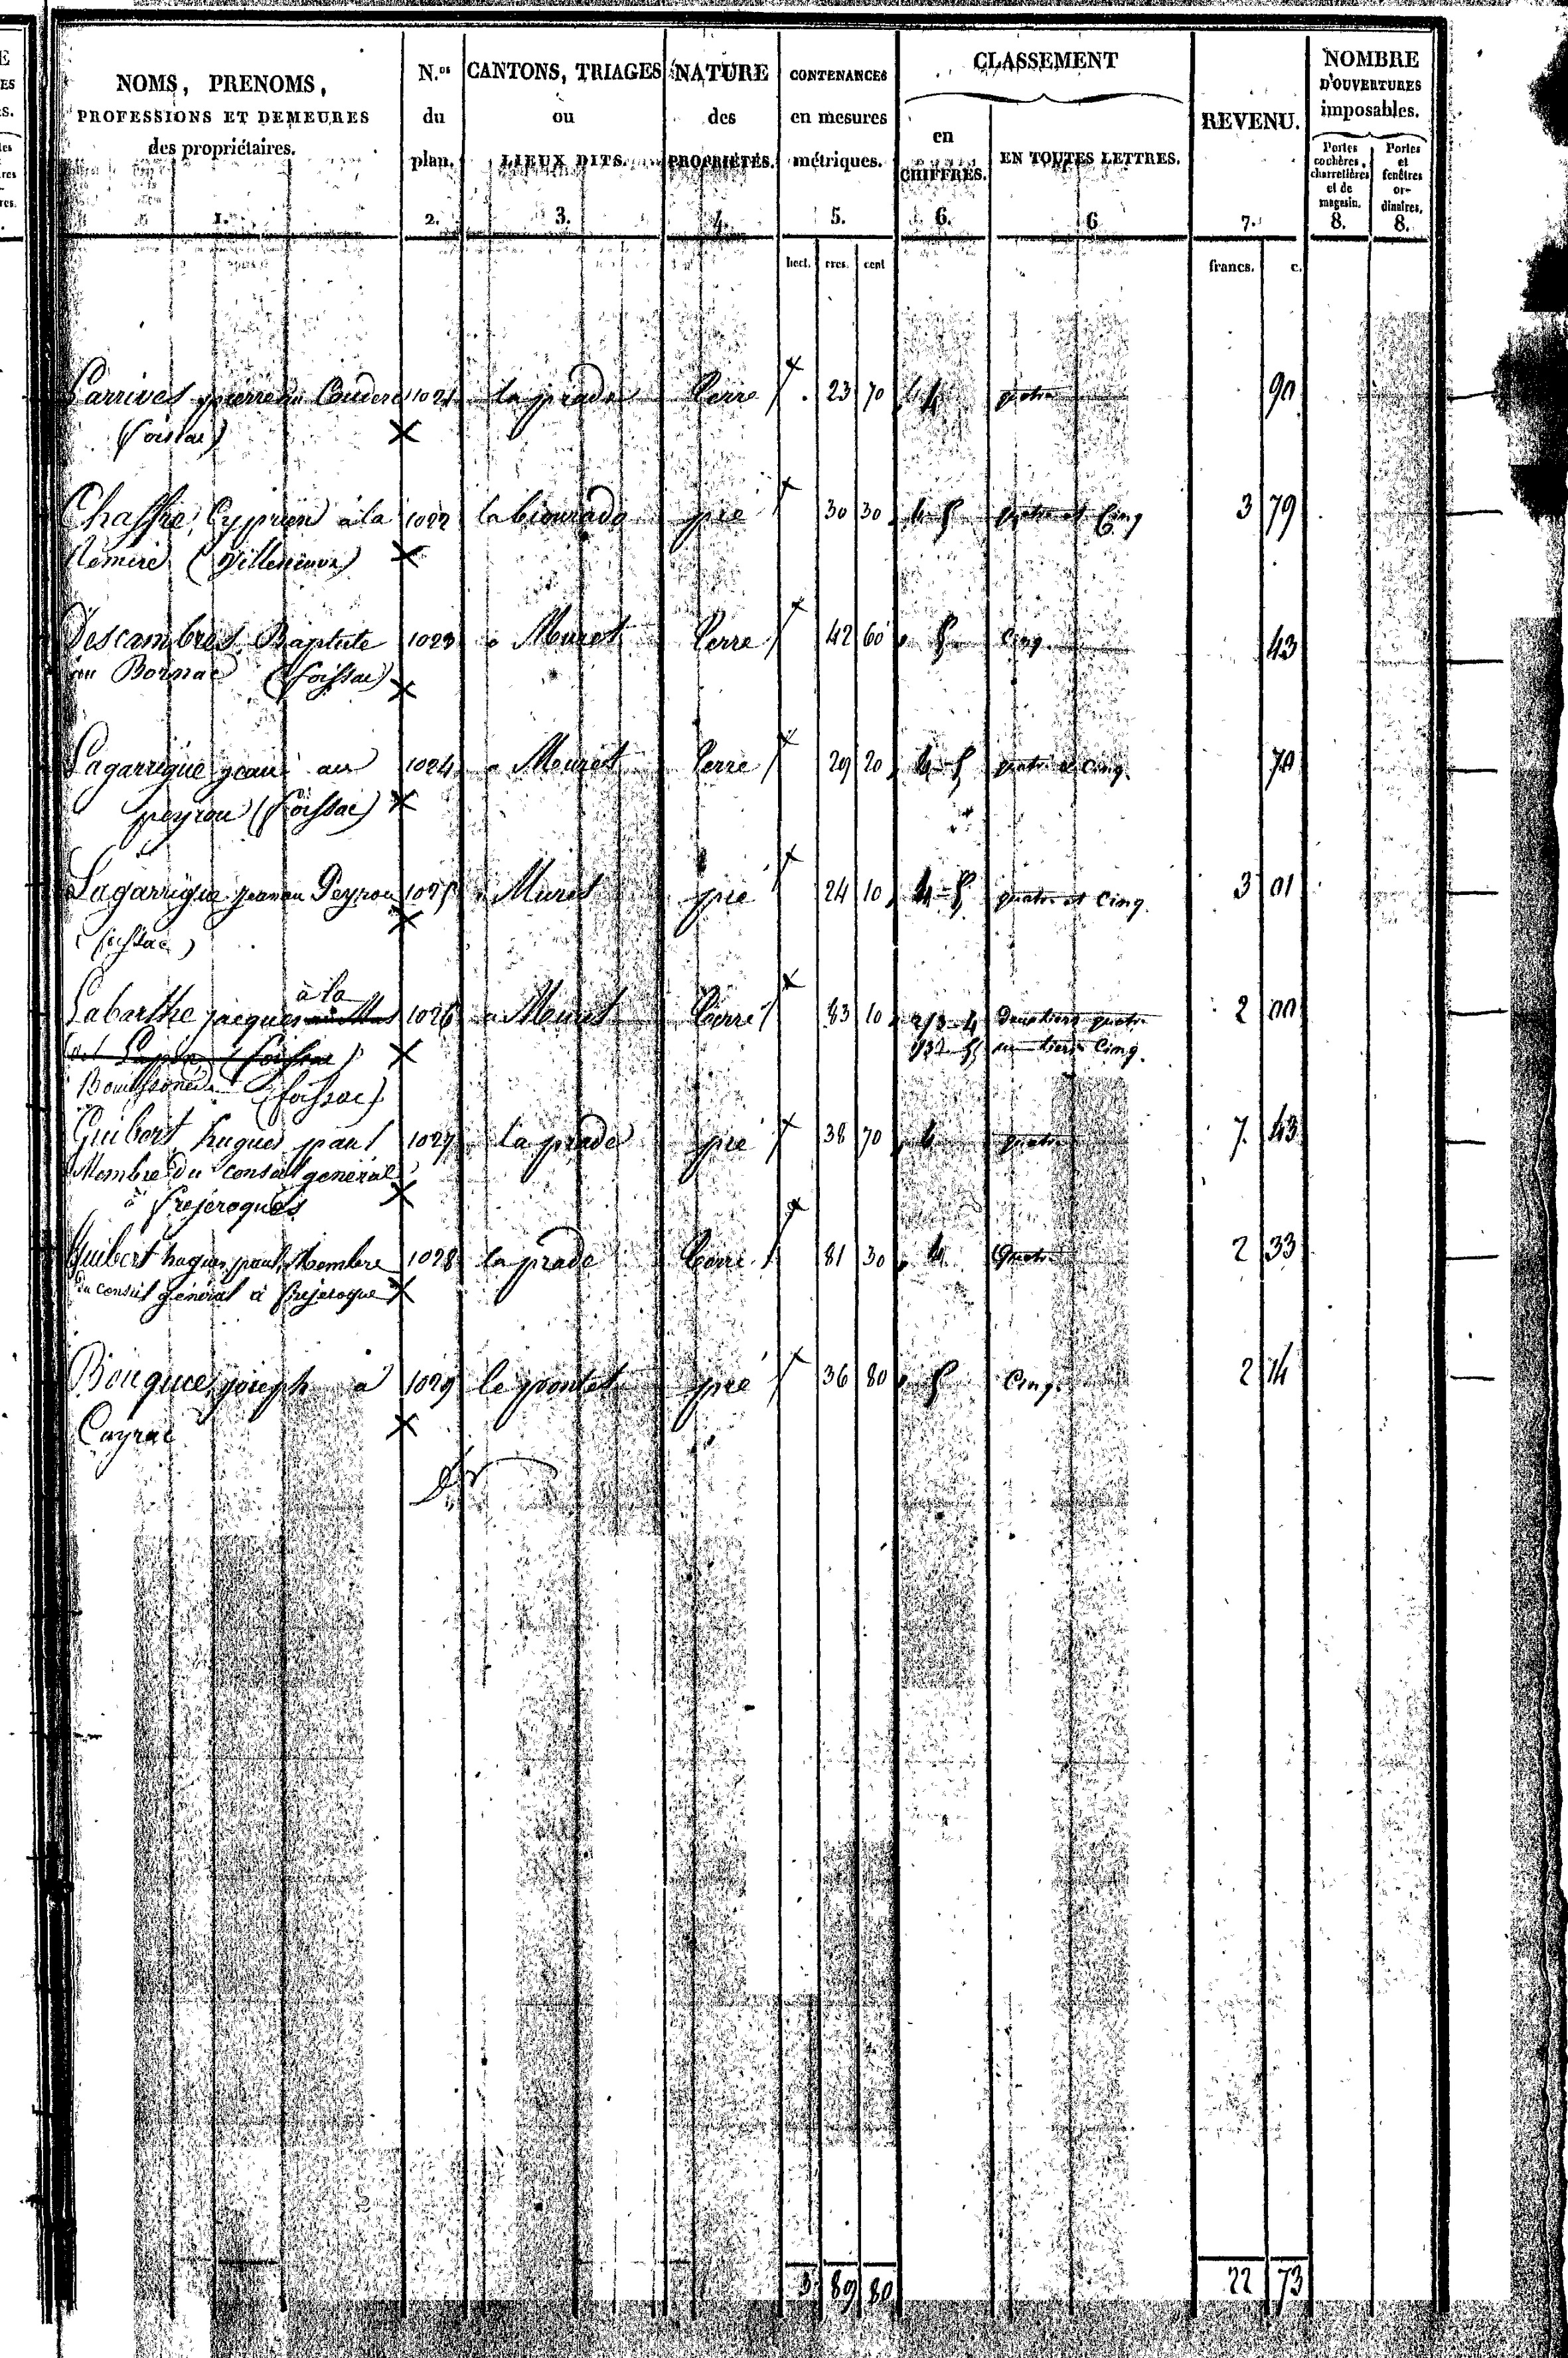 NOMS, PRENOMS, PROFESSIONS ET DEMEURES des propriétaires. 1.
N.os du plan. 2.
CANTONS, TRIAGES ou LIEUX DITS. 3.
NATURE des PROPRIÉTÉS. 4.
CONTENANCES en mesures métriques. 5.
CLASSEMENT
en CHIFFRES. 6.
EN TOUTES LETTRES. 6
REVENU. 7.
NOMBRE D'OUVERTURES imposables.
Portes cochères, charretières et de magasin. 8.
Portes et fenêtres ordinaires. 8.
hect. cent francs. c.
pierre au Couderc 1021 la prade Terre 23 70 4 quatre 90
(foissac)
Cyprien à la 1022 pré 30 30 4-5 quatre et Cinq 3 79
(Villeneuve)
Descambres Baptiste 1023 Muret Terre 42 60 5 Cinq 43
au Bornac (foissac)
Lagarrigue jean au 1024 Muret Terre 29 20 4-5 quatre et cinq 70
peyrou (foissac)
Lagarrigue jean au Peyrou 1025 Muret pré 24 10 4-5 quatre et Cinq. 3 01
(foissac)
à la
Labarthe jacques 1026 Muret Terre 83 10 2/3-4 deux tiers quatre 2 00
(foissac) 1/3-5 un tiers Cinq.
(foissac)
Guibert hugues paul 1027 la prade pré 38 70 4 quatre 7 43
Membre du conseil général
à frejeroques
Guibert hugues paul Membre 1028 la prade Terre 81 30 4 Quatre 2 33
du conseil général à frejeroque
joseph à 1029 le pontet pré 36 80 5 Cinq. 2 14
Cayrac
3 89 80 22 73